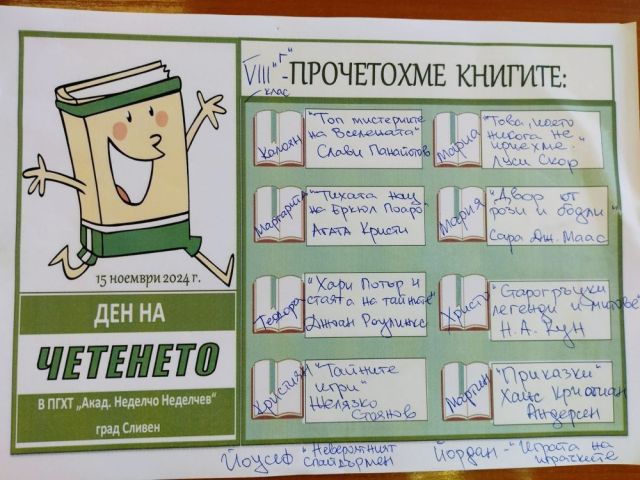 VIII "г" - ПРОЧЕТОХМЕ КНИГИТЕ:
клас
Калоян
"Топ мистериите
на Вселената"
Слави Панайотов
Мария
"Това, което
никога не
приехме"
Луси Скор
Маргарита
"Тихата нощ
на Еркюл Поаро"
Агата Кристи
Мария
"Двор от
рози и бодли"
Сара Дж. Маас
Теодора
"Хари Потър и
стаята на тайните"
Джоан Роулинг
Христо
"Старогръцки
легенди и митове"
Н. А. Кун
Християн
"Тайните
игри"
Желязко
Стоянов
Мартин
"Приказки"
Ханс Кристиан
Андерсен
Йоусеф "Невероятният
спайдърмен
Йордан - "Играта на
играчките
15 ноември 2024 г.
ДЕН НА
ЧЕТЕНЕТО
В ПГХТ „Акад. Неделчо Неделчев"
град Сливен